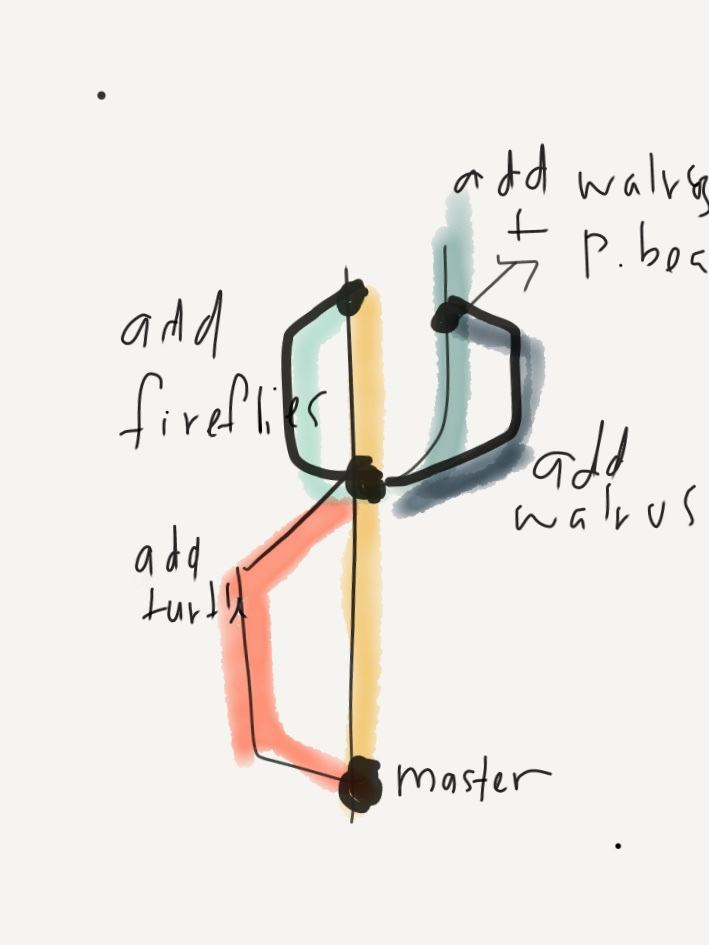 add walrus
+ p.bea
add
fireflies
add
walrus
add
turtle
master